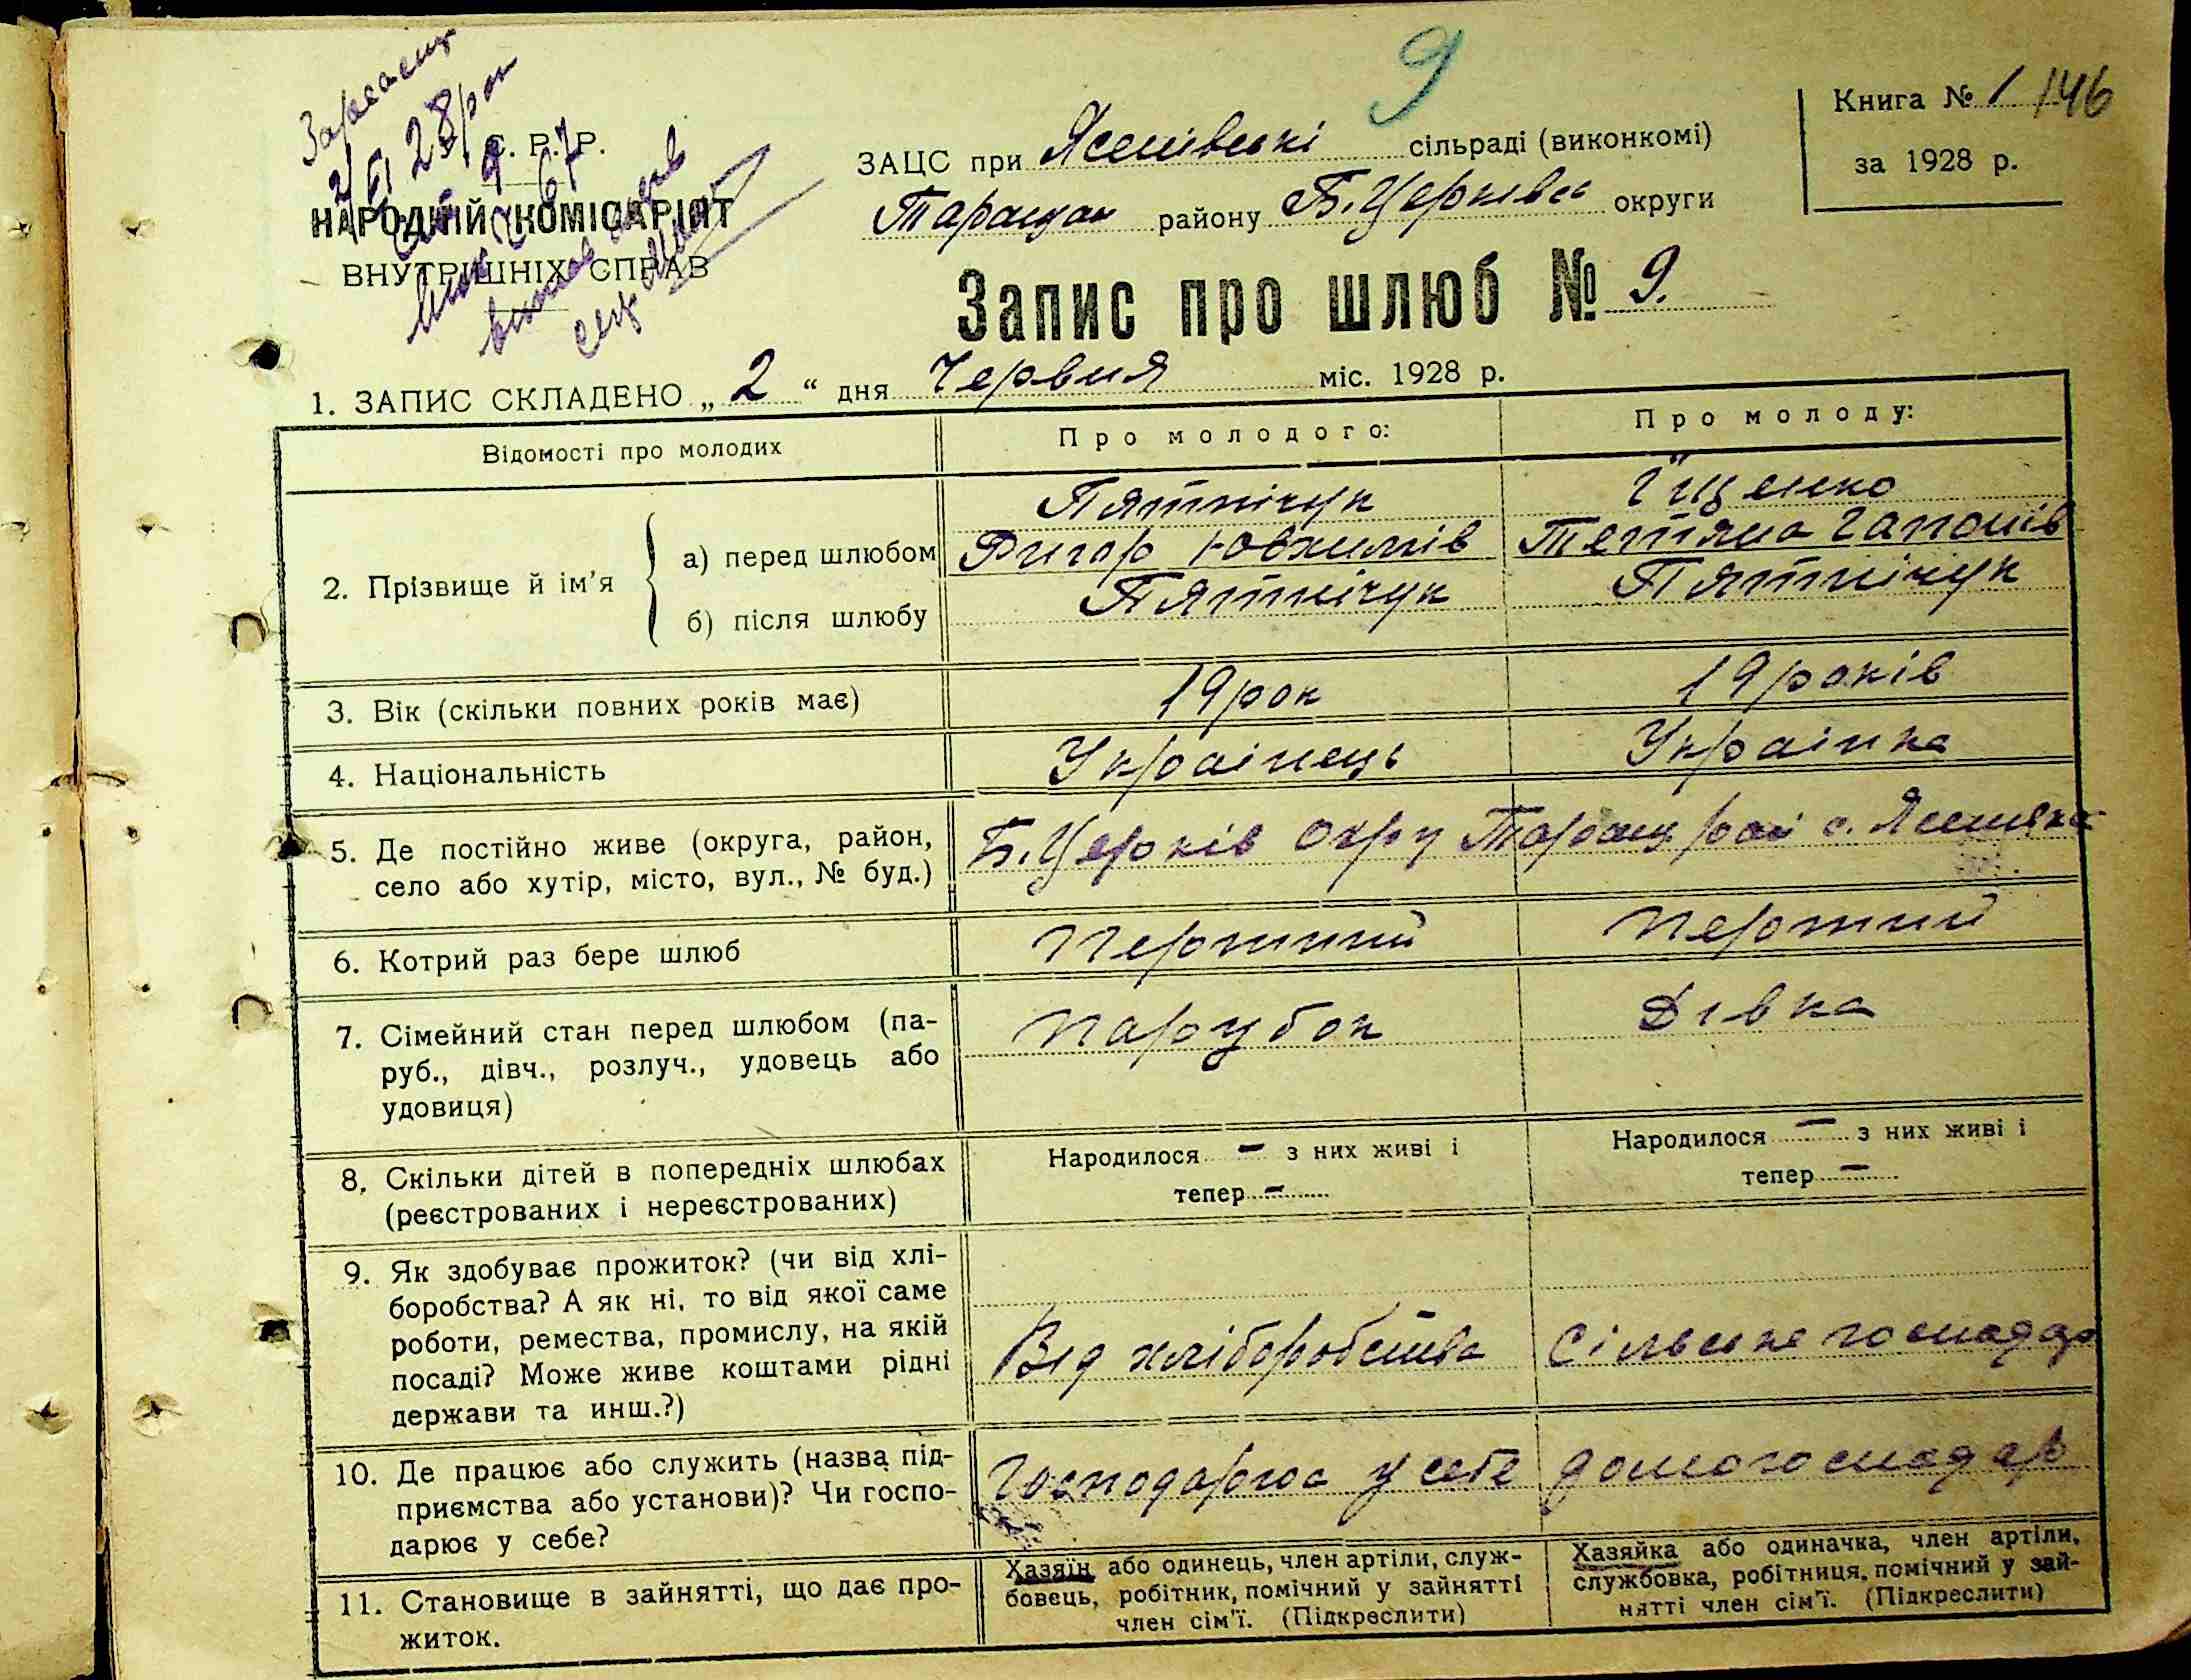 9
Книга № 1 146
за 1928 р.
28 рок
С. Р. Р.
НАРОДНІЙ КОМІСАРІЯТ
ВНУТРІШНІХ СПРАВ
ЗАЦС при Ясенівські сільраді (виконкомі)
Таращан району Б. Церківс округи
Запис про шлюб № 9.
1. ЗАПИС СКЛАДЕНО „ 2 “ дня Червня міс. 1928 р.
Відомості про молодих Про молодого: Про молоду:
2. Прізвище й ім’я
а) перед шлюбом
Пятнічук Іщенко
Григор Ювхимів Тетяна Гапонів
б) після шлюбу Пятнічук Пятнічук
3. Вік (скільки повних років має) 19 рок 19 років
4. Національність Украінець Украінка
5. Де постійно живе (округа, район,
село або хутір, місто, вул., № буд.)
Б. Церків Окру Таращ рай с. Ясенівка
6. Котрий раз бере шлюб Перший Перший
7. Сімейний стан перед шлюбом (па-
руб., дівч., розлуч., удовець або
удовиця)
Парубок Дівка
8. Скільки дітей в попередніх шлюбах
(реєстрованих і нереєстрованих)
Народилося — з них живі і
тепер —
Народилося — з них живі і
тепер —
9. Як здобуває прожиток? (чи від хлі-
боробства? А як ні, то від якої саме
роботи, ремества, промислу, на якій
посаді? Може живе коштами рідні
держави та инш.?)
Від хліборобства Сільське господар
10. Де працює або служить (назва під-
приємства або установи)? Чи госпо-
дарює у себе?
Господарює у себе домогосподар
11. Становище в зайнятті, що дає про-
житок.
Хазяїн або одинець, член артіли, служ-
бовець, робітник, помічний у зайнятті
член сім’ї. (Підкреслити)
Хазяйка або одиначка, член артіли,
службовка, робітниця, помічний у зай-
нятті член сім’ї. (Підкреслити)